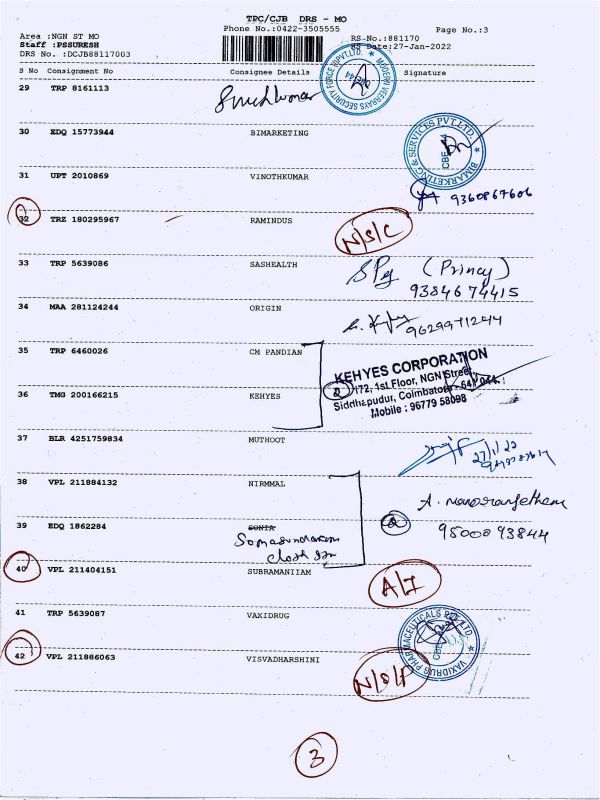 TPC/CJB DRS - MO
Phone No.:0422-3505555
Page No.:3
Area :NGN ST MO
RS-No.:881170
Staff :PSSURESH
RS Date:27-Jan-2022
DRS No. :DCJB88117003
S No Consignment No Consignee Details Signature
29 TRP 8161113
MODERN VEERRAYS SECURITY FORCE (I) PVT.LTD.
CBE-44
30 EDQ 15773944 BIMARKETING
BIMARKETING & SERVICES PVT.LTD.
CBE-44
31 UPT 2010869 VINOTHKUMAR
9360867606
32 TRZ 180295967 RAMINDUS N/S/C
33 TRP 5639086 SASHEALTH (Princy)
9384674415
34 MAA 281124244 ORIGIN
9629971244
35 TRP 6460026 CM PANDIAN
KEHYES CORPORATION
172, 1st Floor, NGN Street,
Siddhapudur, Coimbatore - 641 044.
Mobile : 96779 58098
2
36 TMG 200166215 KEHYES
37 BLR 4251759834 MUTHOOT
27/1/22
38 VPL 211884132 NIRMMAL
A. manoranjetham
39 EDQ 1862284 SONIA
2 9500093844
Somasundaram
cloth
40 VPL 211404151 SUBRAMANIIAM A/I
41 TRP 5639087 VAXIDRUG
VAXIDRUG PHARMACEUTICALS PVT.LTD.
42 VPL 211886063 VISVADHARSHINI N/S/P
3